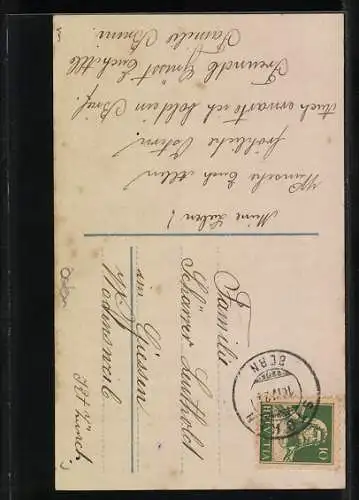 Meine Lieben!
Wünsche Euch Allen
fröhliche Ostern.
Auch erwarte ich bald ein Brief.
Freundl. Grüsst Euch alle
Familie
Familie
Schärrer-Leuthold
im Giessen
Wädensweil
Kt. Zürich
BERN
HELVETIA
10